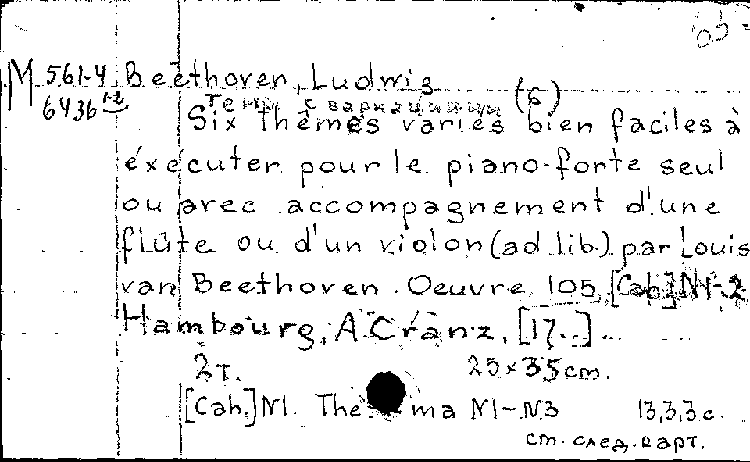 М 561-4 Beethoven, Ludwig
6436 1-2 Темы с вариациями (6)
Six thèmes variés bien faciles à
éxécuter pour le piano-forte seul
ou avec accompagnement d'une
flûte ou d'un violon (ad lib.) par Louis
van Beethoven. Oeuvre 105. [Cah.] N1-2
Hambourg, A. Cranz, [17..]
2 т. 25x35 cm.
[Cah.] N1. The ma N1-N3 13,3,3 c.
см. след. карт.